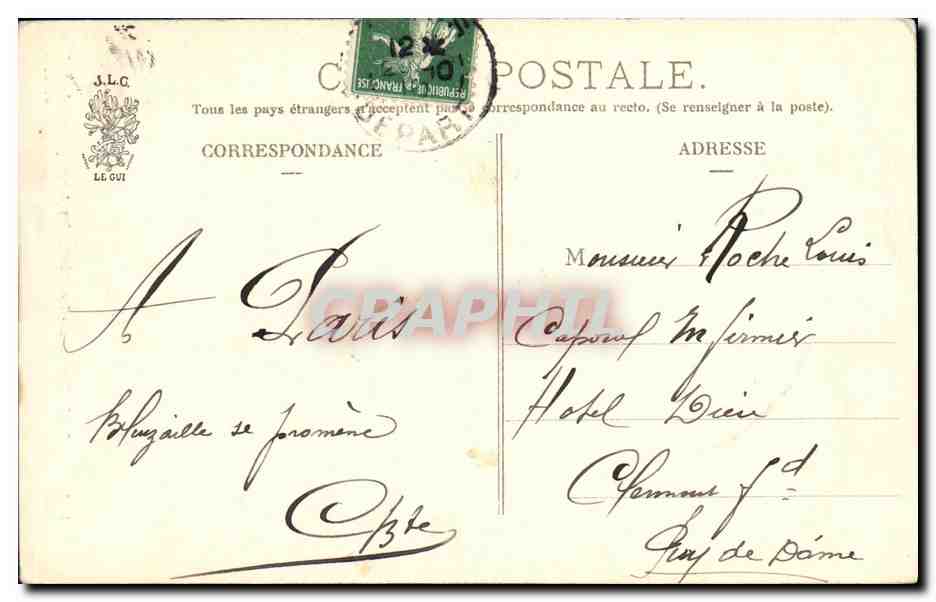 J.L.C.
LE GUI
12
10
RÉPUBLIQUE FRANÇAISE
DEPART
C POSTALE.
Tous les pays étrangers n'acceptent pas correspondance au recto. (Se renseigner à la poste).
CORRESPONDANCE
A Paris
se promène
ADRESSE
Monsieur Roche Louis
Caporal Infirmier
Hotel Dieu
Clermont Fd
Puy de Dôme
CPHIL